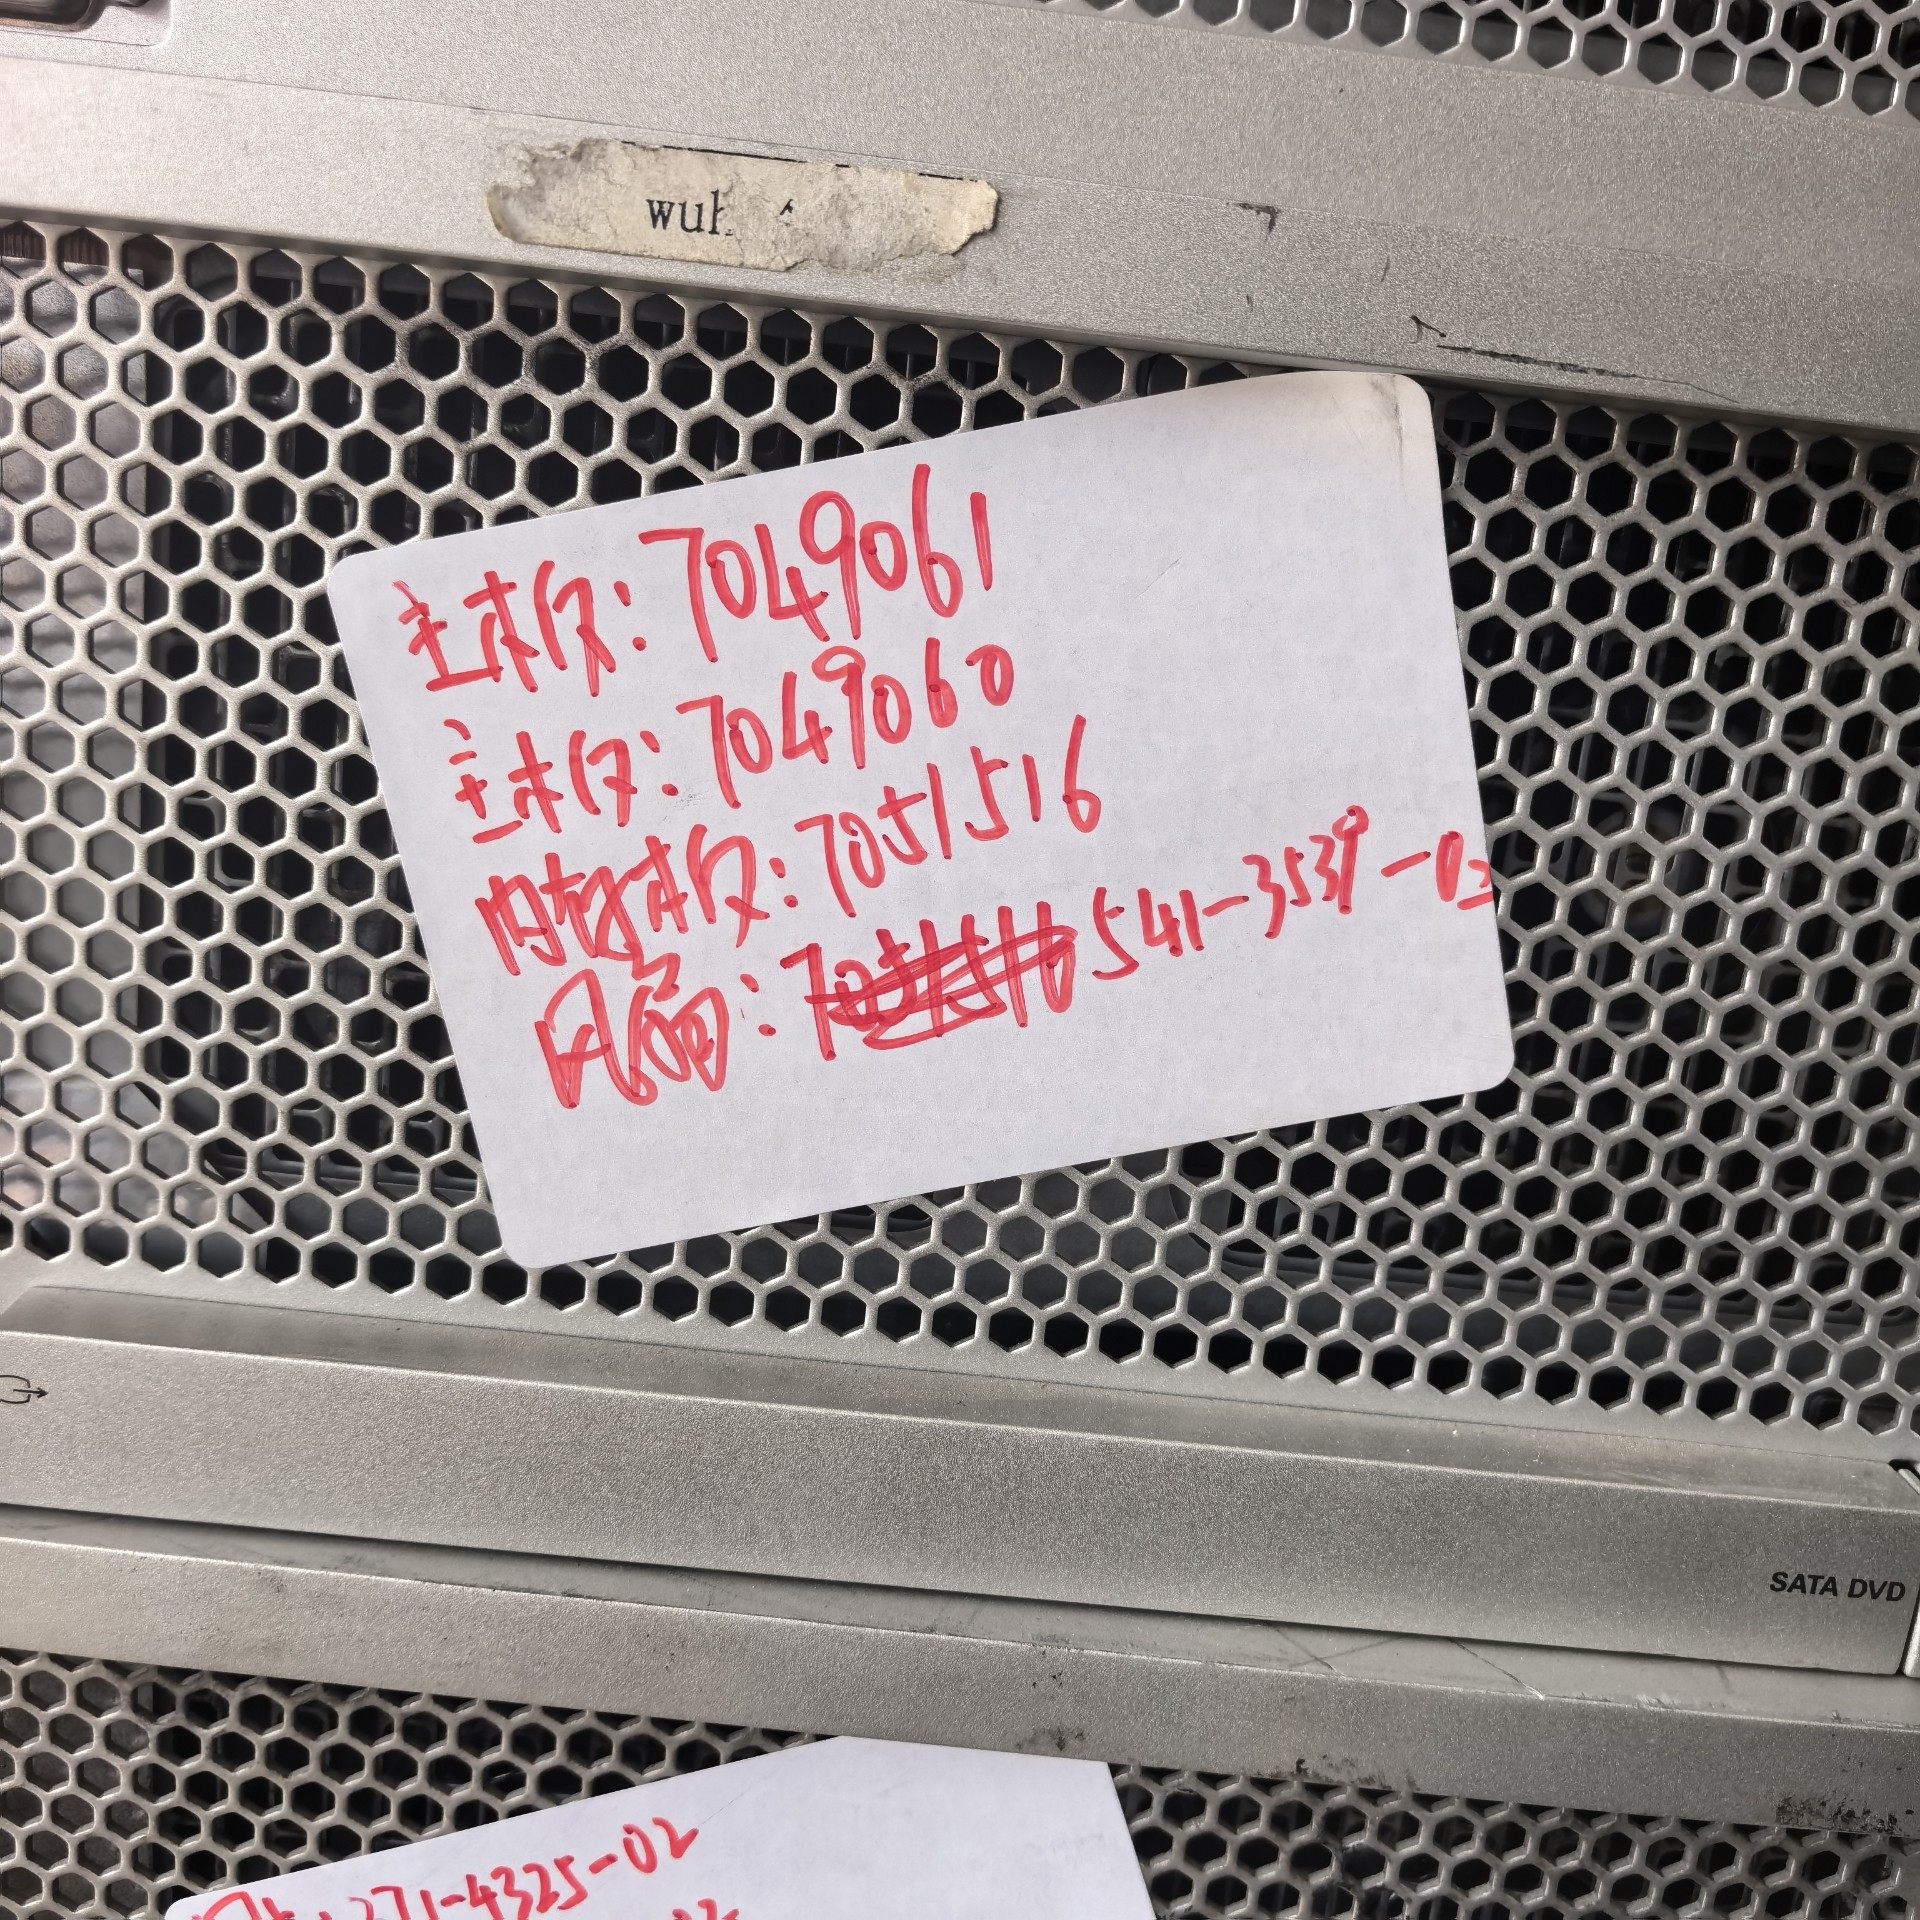 主板:7049061
主板:7049060
内存板:7051516
风扇:541-3539-03
SATA DVD
371-4325-02